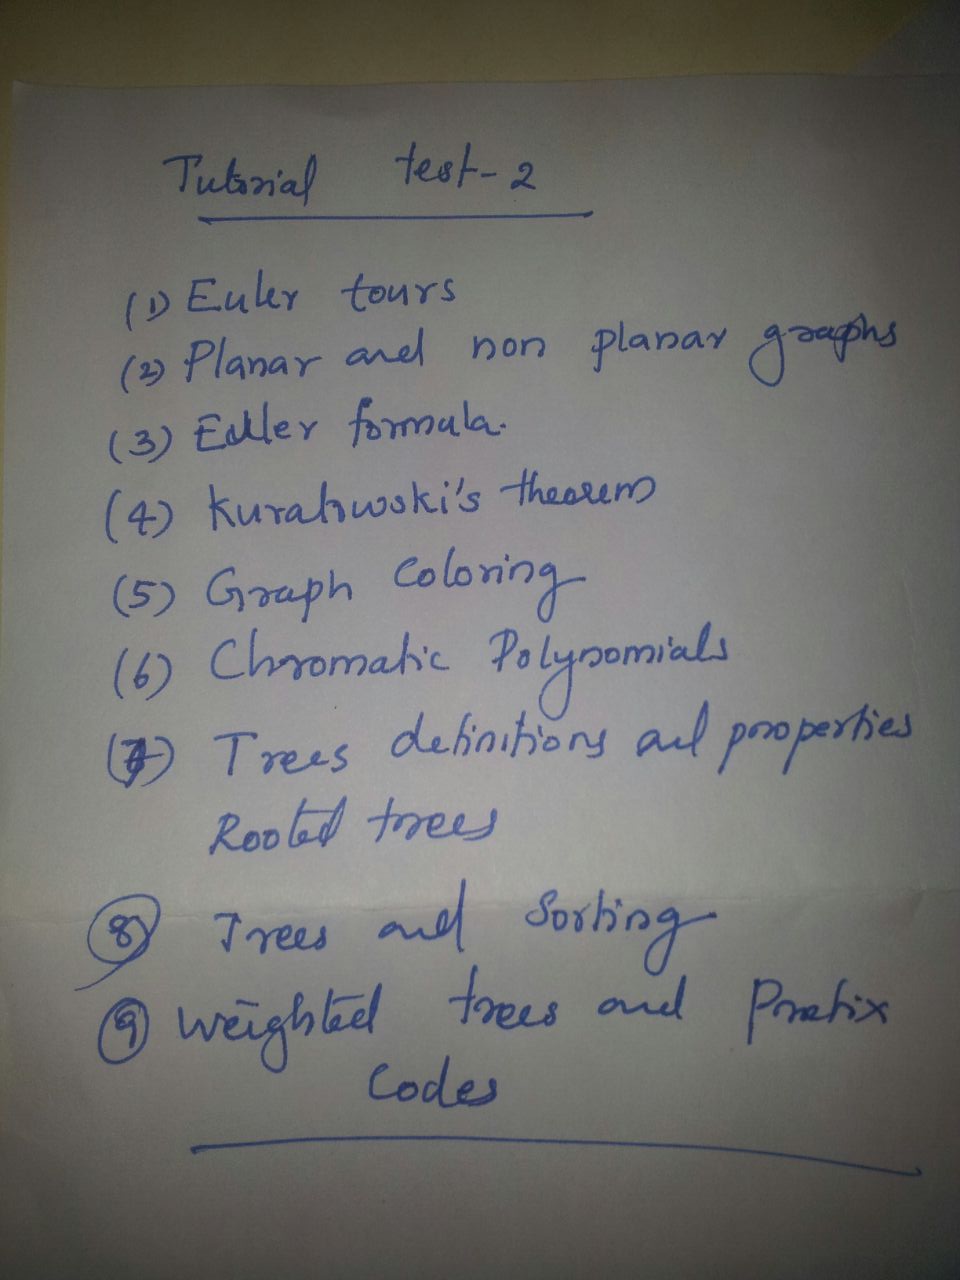 Tutorial test-2
(1) Euler tours
(2) Planar and non planar graphs
(3) Euller formula.
(4) Kuratowski's theorem
(5) Graph Coloring
(6) Chromatic Polynomials
(7) Trees definitions and properties
Rooted trees
(8) Trees and Sorting
(9) Weighted trees and Prefix
Codes